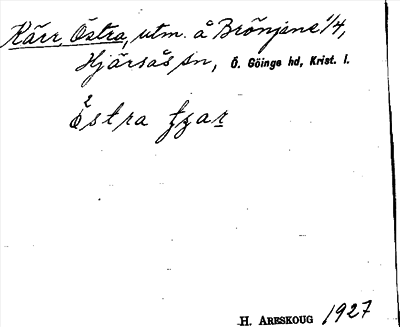 Kärr, Östra, utm. å Brönjane 1/4,
Hjärsås sn, Ö. Göinge hd, Krist. l.
östra
H. ARESKOUG 1927